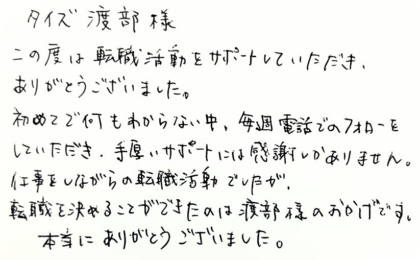 タイズ 渡部様
この度は転職活動をサポートしていただき、
ありがとうございました。
初めてで何もわからない中、毎週電話でのフォローを
していただき、手厚いサポートには感謝しかありません。
仕事をしながらの転職活動でしたが、
転職を決めることができたのは渡部様のおかげです。
本当にありがとうございました。